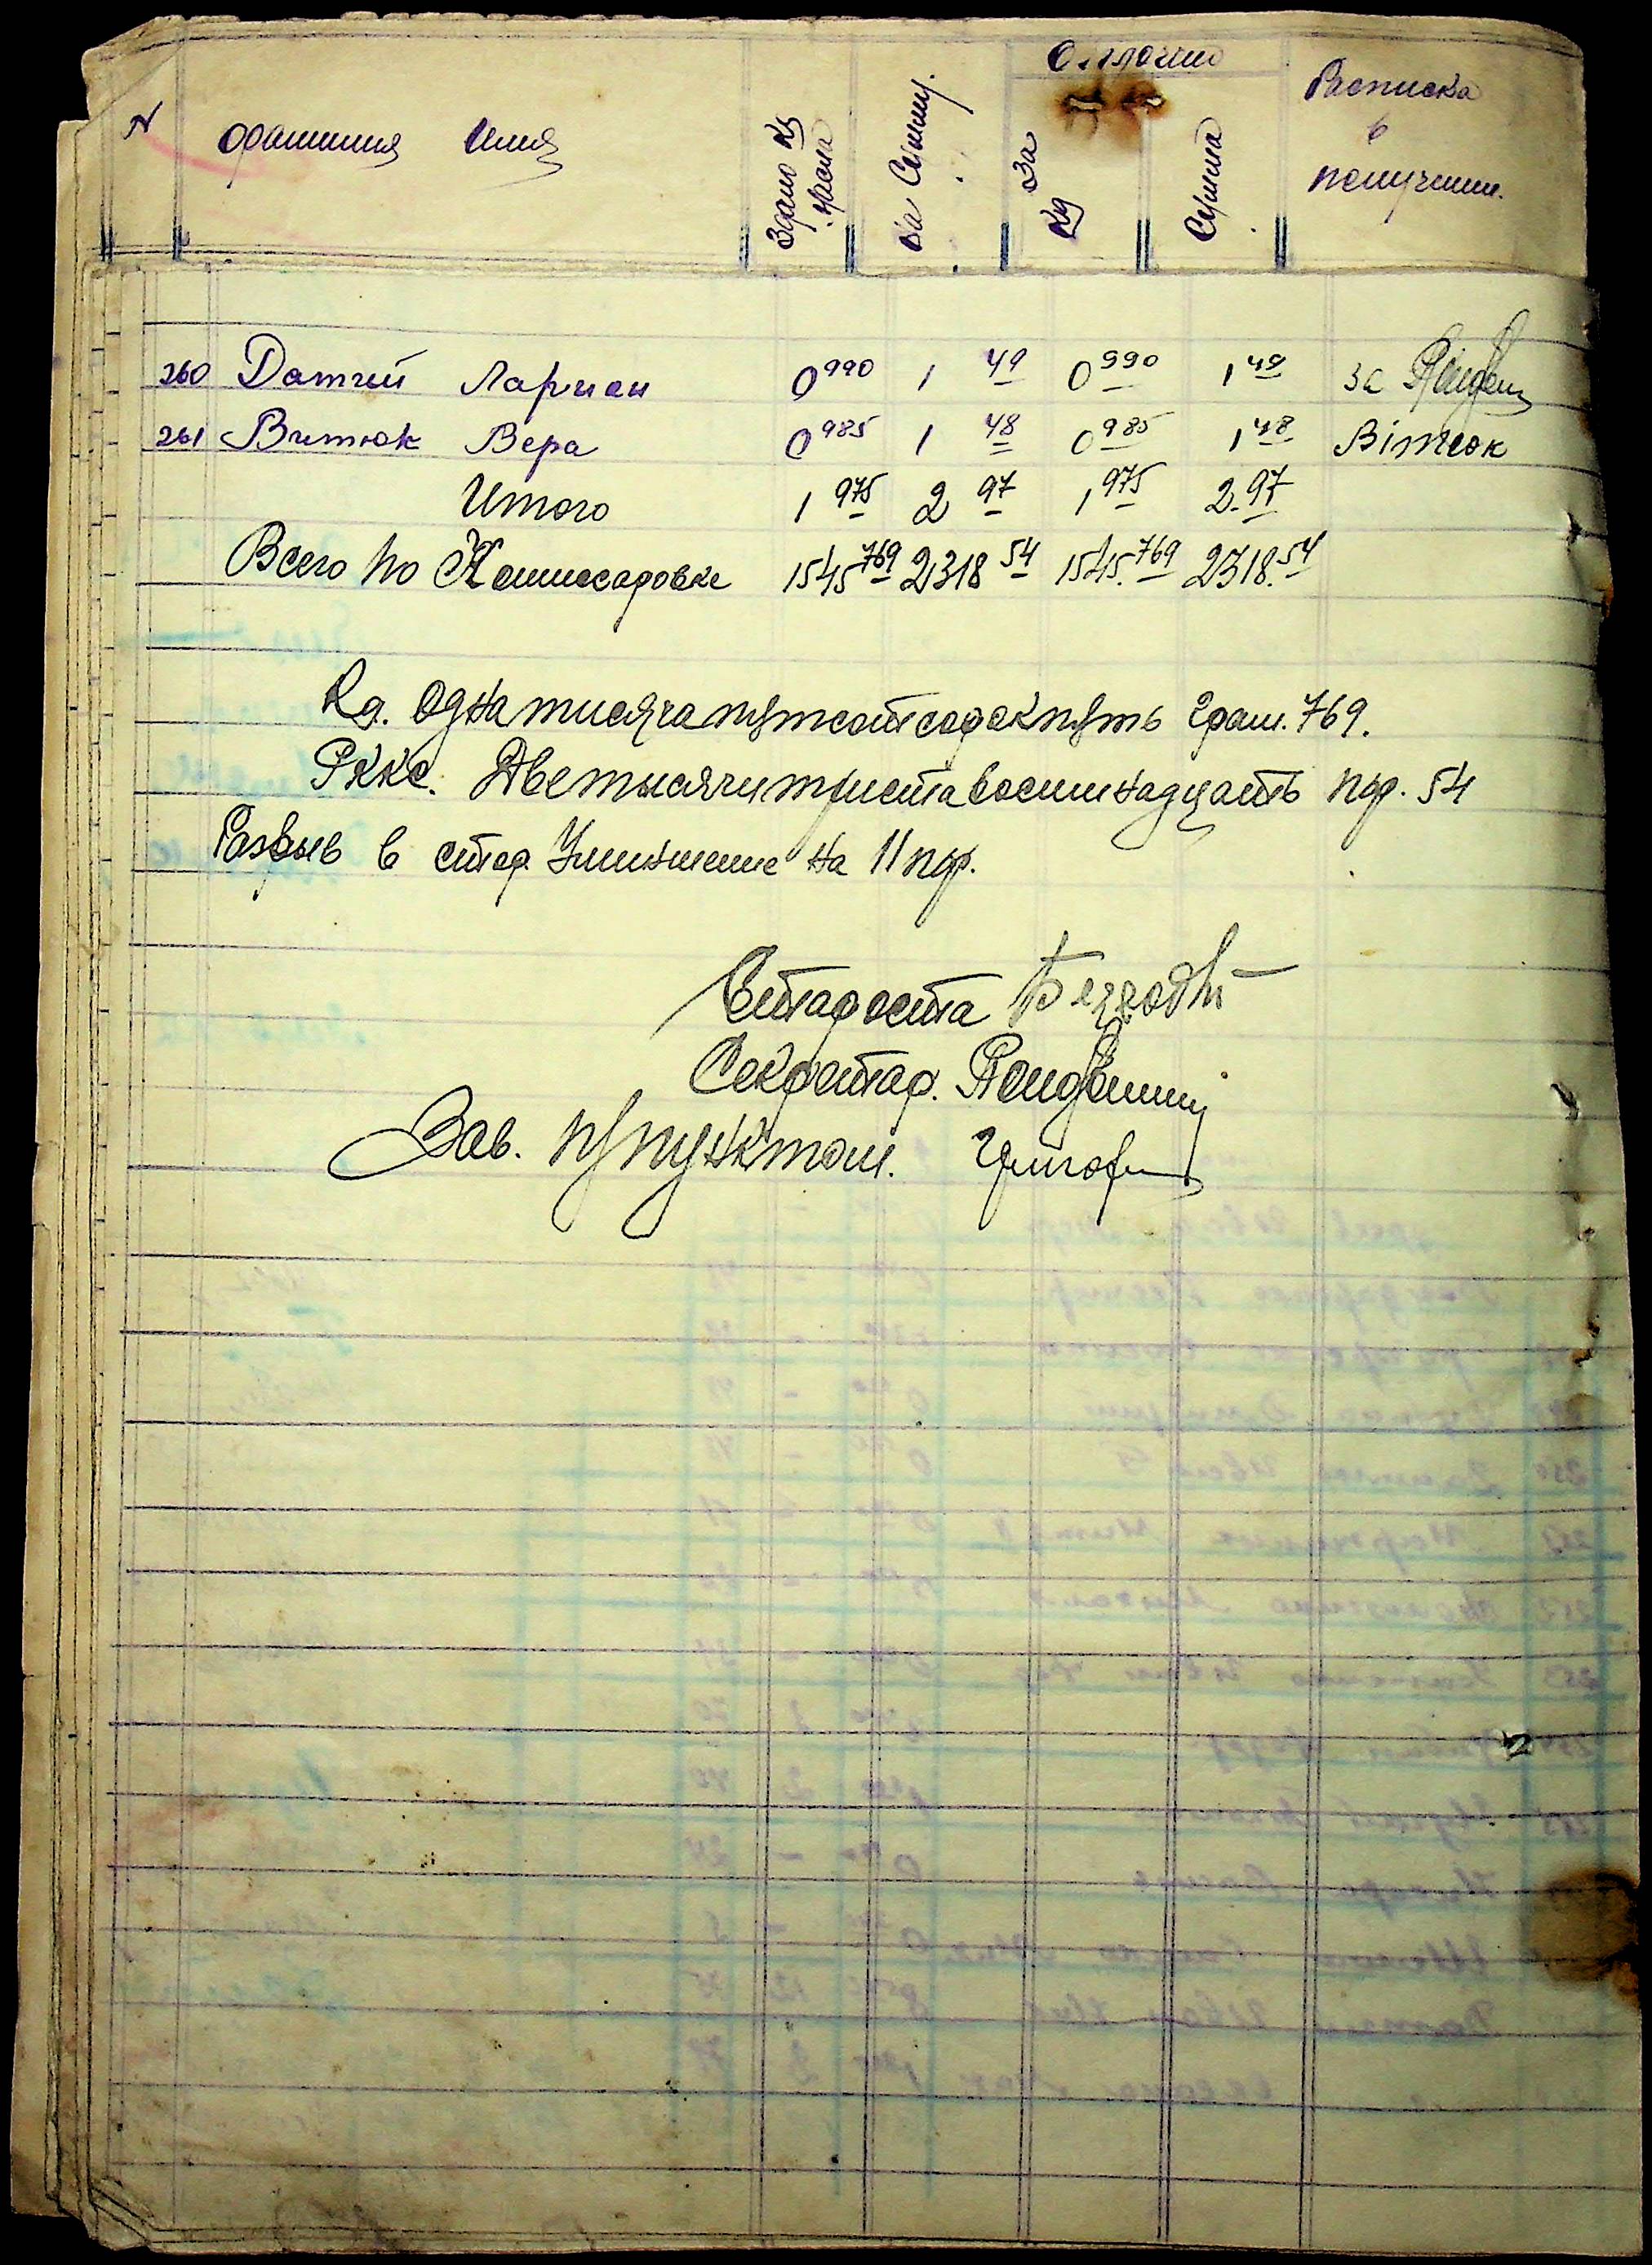 N Фамилия Имя Здано кг масла На Сумму Оплачено За кг Сумма Расписка в получении.
260 Датий Ларион 0 990 1 49 0 990 1 49 за
261 Витюк Вера 0 985 1 48 0 985 1 48 Вітюк
Итого 1 975 2 97 1 975 2.97
Всего по Комиссаровке 1545 769 2318 54 1545.769 2318.54
Кг. Одна тисяча пятсот сорок пять грам. 769.
Рккс. Две тысячи триста восимнадцать пф. 54
в Уминшение на 11 пф.
Староста
Секретар.
Зав. пунктом.